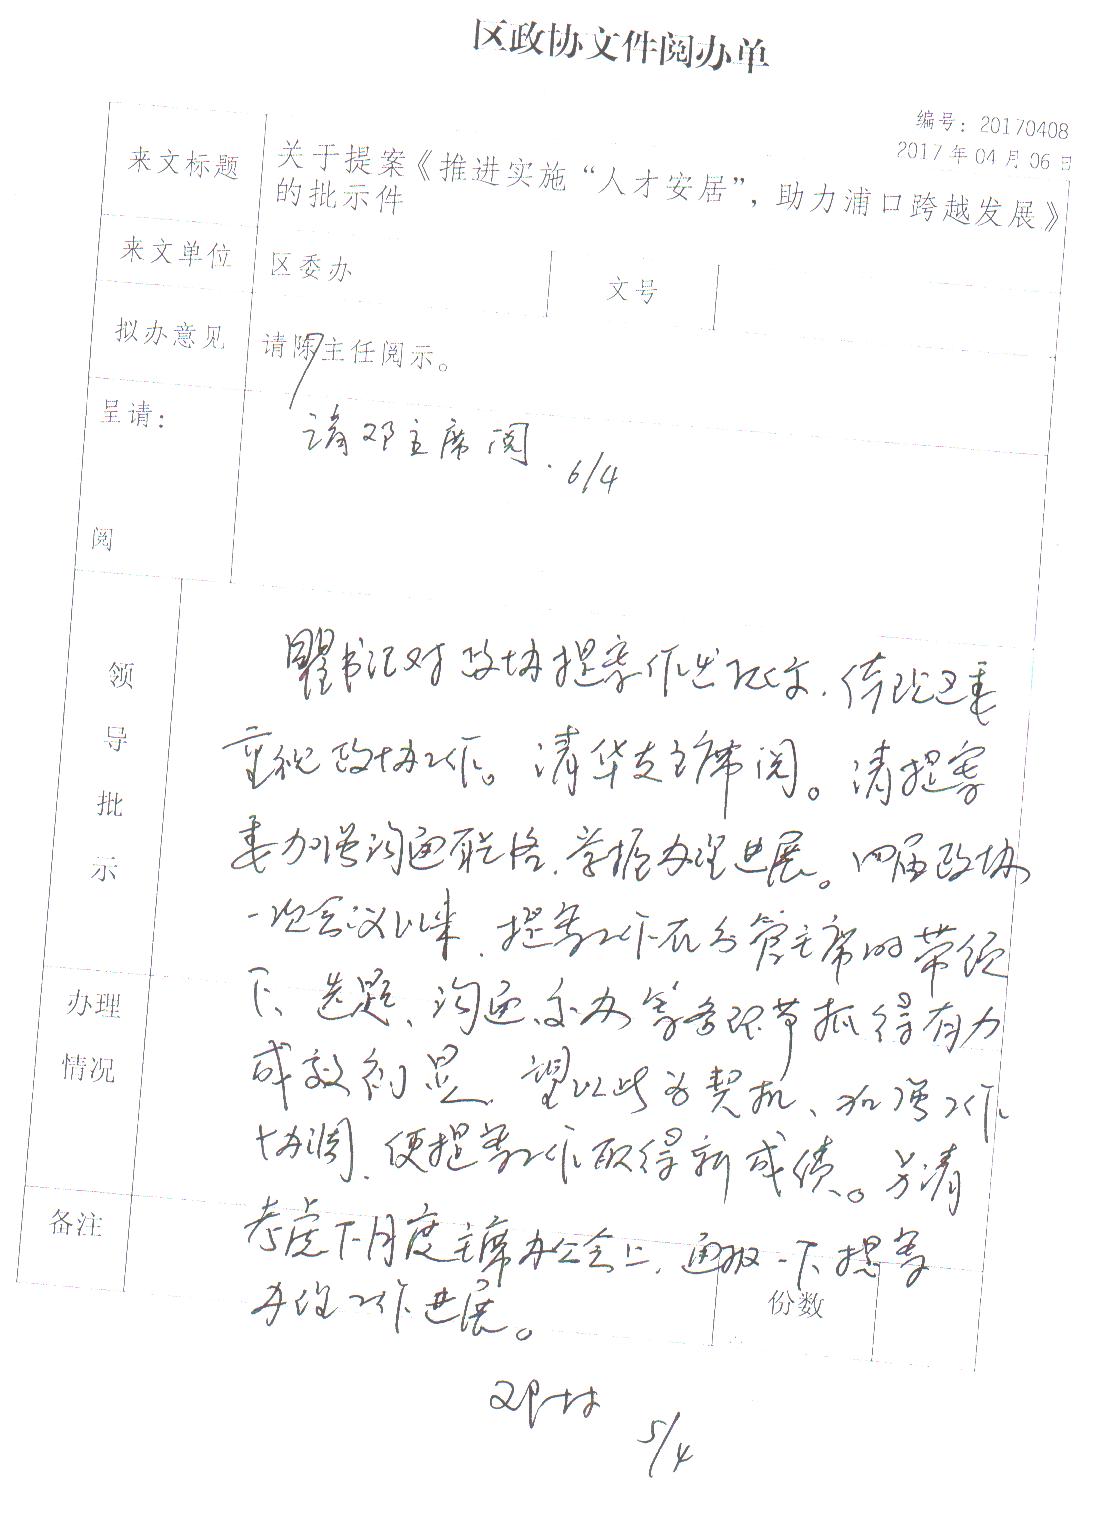 区政协文件阅办单
编号：20170408
2017 年 04 月 06 日
来文标题
关于提案《推进实施“人才安居”，助力浦口跨越发展》
的批示件
来文单位
区委办
文号
拟办意见
请陈主任阅示。
呈请：
请邓主席阅.
6/4
阅
领
导
批
示
瞿书记对政协提案作出批文，体现区委
重视政协工作。请华支主席阅。请提案
委加强沟通联络，掌握办理进展。四届政协
一次会议以来，提案工作在分管主席的带领
下、选题、沟通、交办等各环节抓得有力
成效初显，望以此为契机、加强工作
协调，使提案工作取得新成绩。另请
考虑下月度主席办公会上，通报一下提案
办理工作进展。
办理
情况
备注
份数
邓
5/4